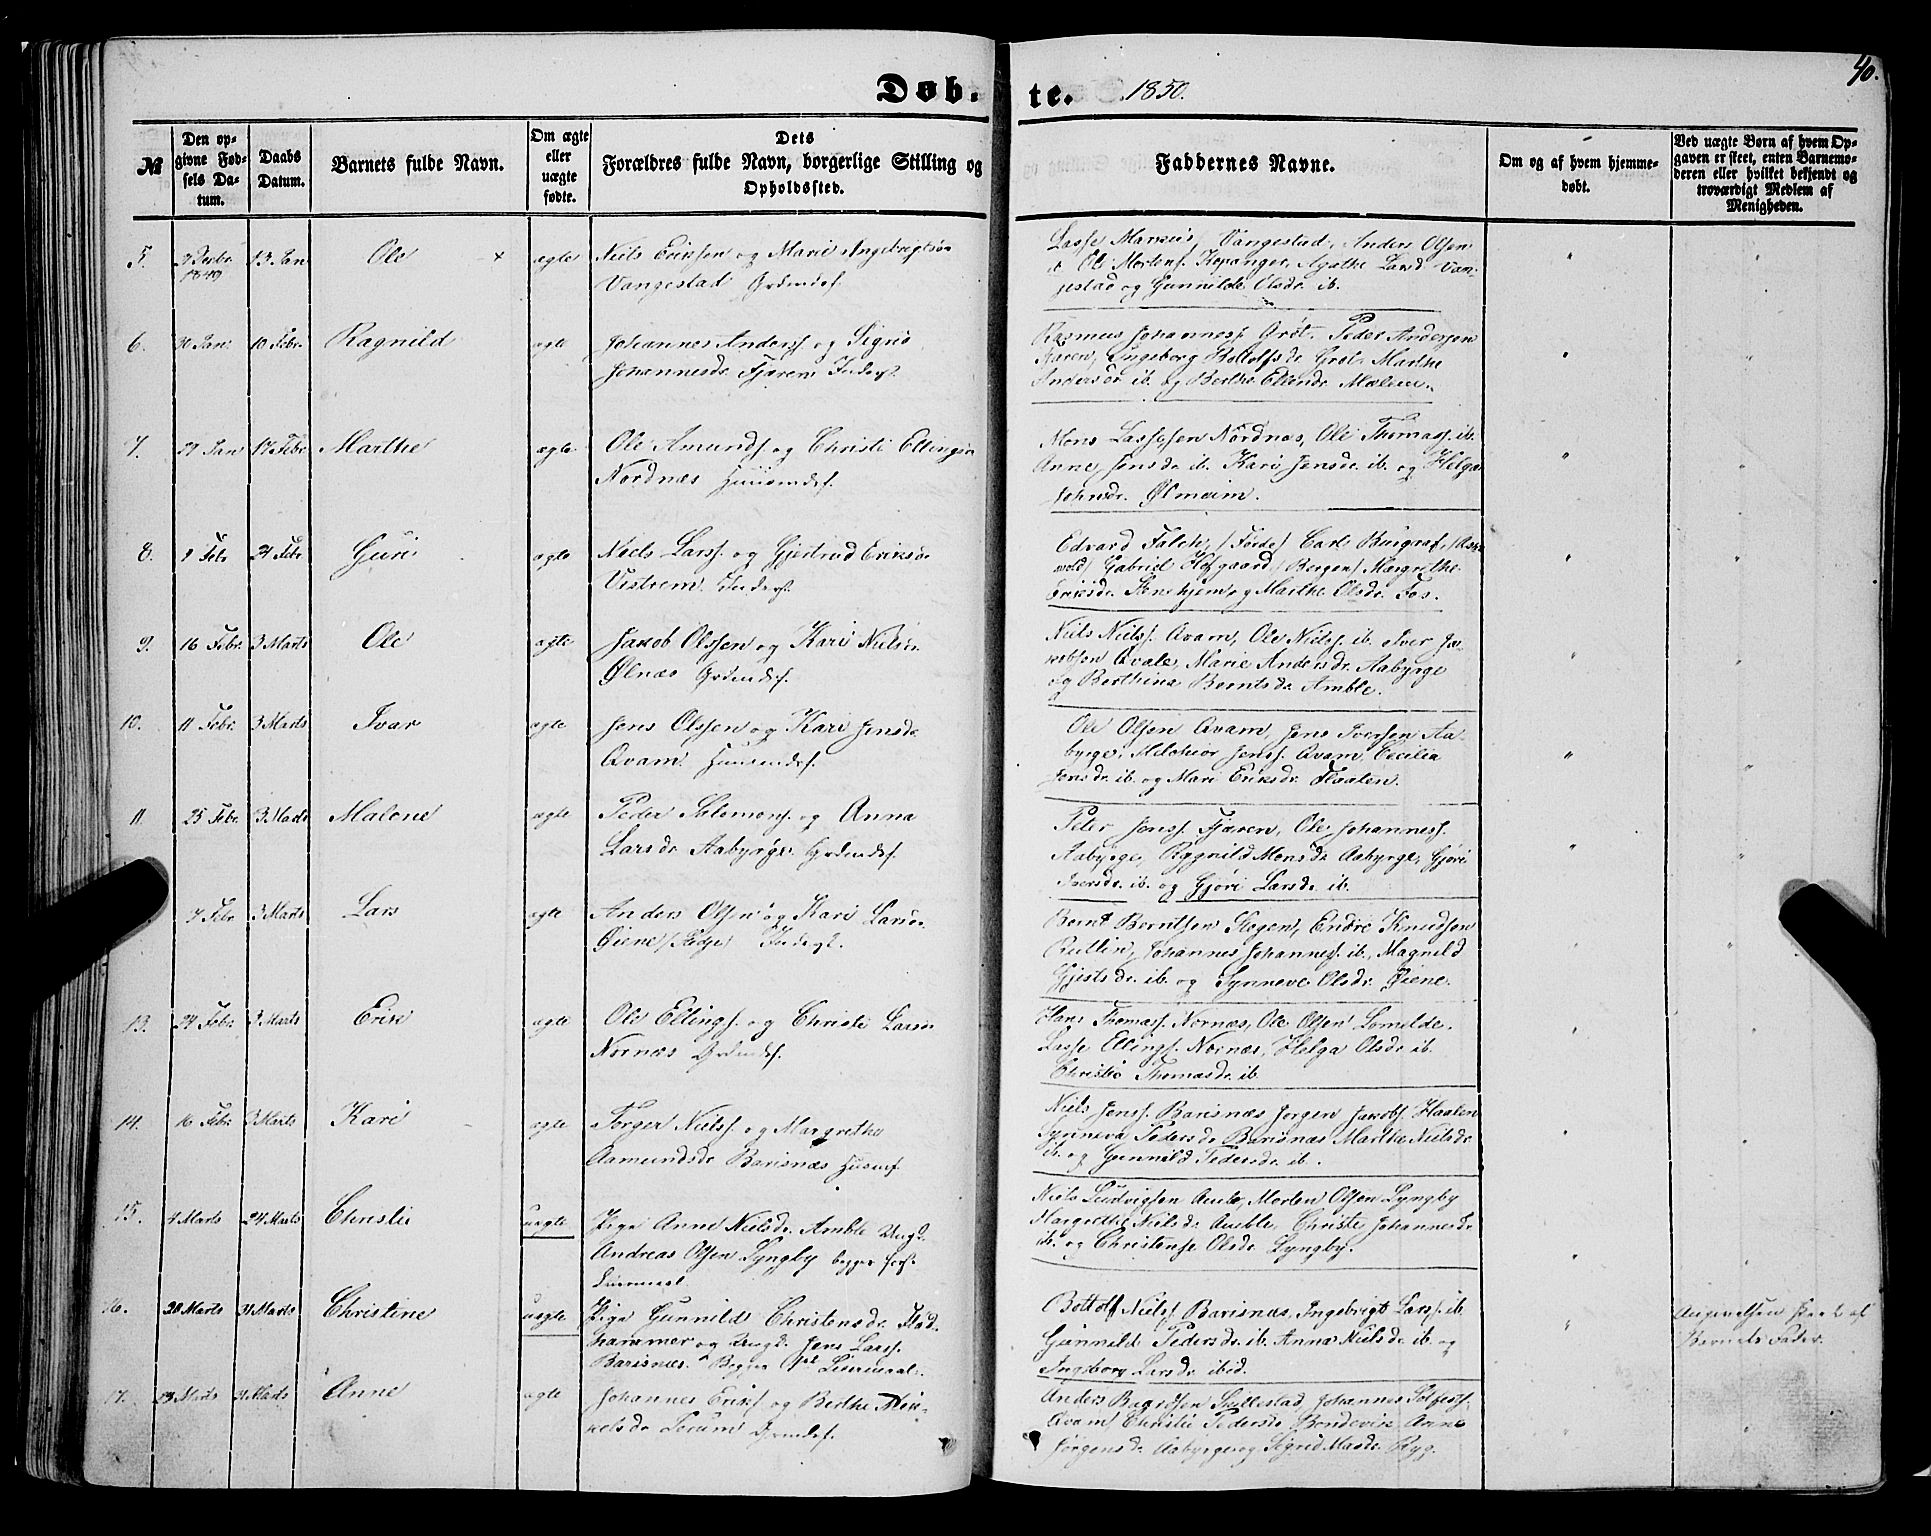 40.
Døb. te. 1850.
№
Den opgivne Fødsels Datum.
Daabs Datum.
Barnets fulde Navn.
Om ægte eller uægte fødte.
Dets Forældres fulde Navn, borgerlige Stilling og Opholdssted.
Faddernes Navne.
Om og af hvem hjemmedøbt.
Ved uægte Børn af hvem Opgaven er skeet, enten Barnemoderen eller hvilket bekjendt og troværdigt Medlem af Menigheden.
5. 1849 13 Jan Ole × ægte
Niels Eriksen og Marie Ingebrigtsdr
Vangestad Grdmdsf.
Lasse Markus, Vangestad, Anders Olsen
Ole Mortens. Kopanger, Agathe Larsd Van-
gestad og Gunnilde Olsdr ib.
6. 30 Jan. 10 Febr. Ragnild ægte
Johannes Anders. og Signe
Johannesdr Fjæren Inderst.
Rasmus Johanness. Grøt. Peder Andersen
Fjæren, Ingeborg Bottolfsdr Grøt, Marthe
Andersdr ib. og Berthe Eliendr Mælum.
7. 27 Jan 17 Febr Marthe ægte
Ole Amunds. og Christi Ellingsdr
Nordnæs Huusmdsf.
Mons Lassesen Nordnæs, Ole Thomass. ib.
Anne Jensdr ib. Kari Jensdr. ib. og Helga
Johnsdr. Ølmeim.
8. 9 Febr 24 Febr Guri ægte
Niels Larss. og Gjertrud Eriksdr
Vestrem. Inderst.
Edvard Falch, /Førde/ Carl Burgraf, /Ask-
vold/ Gabriel Hofgaard, /Bergen/ Margrethe
Eriksdr. Stenehjem og Marthe Olsdr. Fos.
9. 16 Febr. 3 Marts Ole ægte
Jakob Olssen og Kari Nielsdr.
Ølnæs Grdmdsf.
Niels Nielss. Qvam, Ole Nielss. ib. Iver Ja-
kobsen Qvale, Marie Andersdr. Aabyrge
og Berthine Berntsdr. Amble.
10. 11 Febr. 3 Marts Ivar ægte
Jens Olssen og Kari Jensdr
Qvam. Huusmdsf.
Ole Olsen Qvam, Jens Iversen Aa-
byrge, Milchior Jenss. Qvam Cecilia
Jensdr. ib. og Mari Eriksdr. Flaaten.
11. 25 Febr. 3 Marts Malene ægte
Peder Salomons. og Anna
Larsdr Aabyrge. Grdmdsf.
Peter Jenss. Fjæren, Ole Johanness.
Aabyrge, Rygnild Monsdr Aabyrge, Gjøri
Iversdr. ib. og Gjøri Larsdr ib.
7 Febr 3 Marts Lars ægte
Anders Olsen og Kari Larsdr
Øiene Inderst.
Bernt Berntsen Stegen, Endre Knudsen
Rutlin, Johannes Johanness. ib., Magnild
Gjestsdr. ib. og Synneve Olsdr. Øiene.
13. 24 Febr. 3 Marts Erik ægte
Ole Ellings. og Christi Larsdr
Nornæs Grdmdsf.
Hans Thomass. Nornæs, Ole Olsen Lomelde.
Lasse Ellings. Nornæs, Helga Olsdr ib.
Christie Thomasdr. ib.
14. 16 Febr. 3 Marts Kari ægte
Torger Nielss. og Margrethe
Aamundsdr Barisnæs Husmf.
Niels Jenss. Barisnæs Jørgen Jakobs. Haalen
Synneva Pedersdr Barisnæs Marthe Nielsdr
ib. og Gunnild Pedersdr. ib.
15. 4 Marts 24 Marts Christie uægte
Pige Anne Nielsdr. Amble Ungk.
Andreas Olsen Lyngby begges første
Leiermaal
Niels Ludvigsen Amble, Morten Olsen Lyngby
Margrethe Nielsdr Amble, Christie Johannesdr
ib. og Christense Olsdr Lyngby.
16. 20 Marts 31 Marts Christine uægte
Pige Gunnild Christensdr. Flad-
hammer og Ungk. Jens Larss.
Barisnæs. Begges 1ste Leiermaal.
Bottolf Nielss Barisnæs, Ingebrigt Larss. ib.
Gunnild Pedersdr. ib. Anna Nielsdr ib. og
Ingeborg Larsdr. ibid.
Angivelsen skeet af
Barnets Fader.
17. 13 Marts 31 Marts Anne ægte
Johannes Eriks. og Berthe Mik-
kelsdr Grdmdsf.
Anders Baardsen Skillestad, Johannes
Qvam Christie Pedersdr Bondevik Anne
Jørgensdr Aabyrge og Sigrid Masdr Ryg.